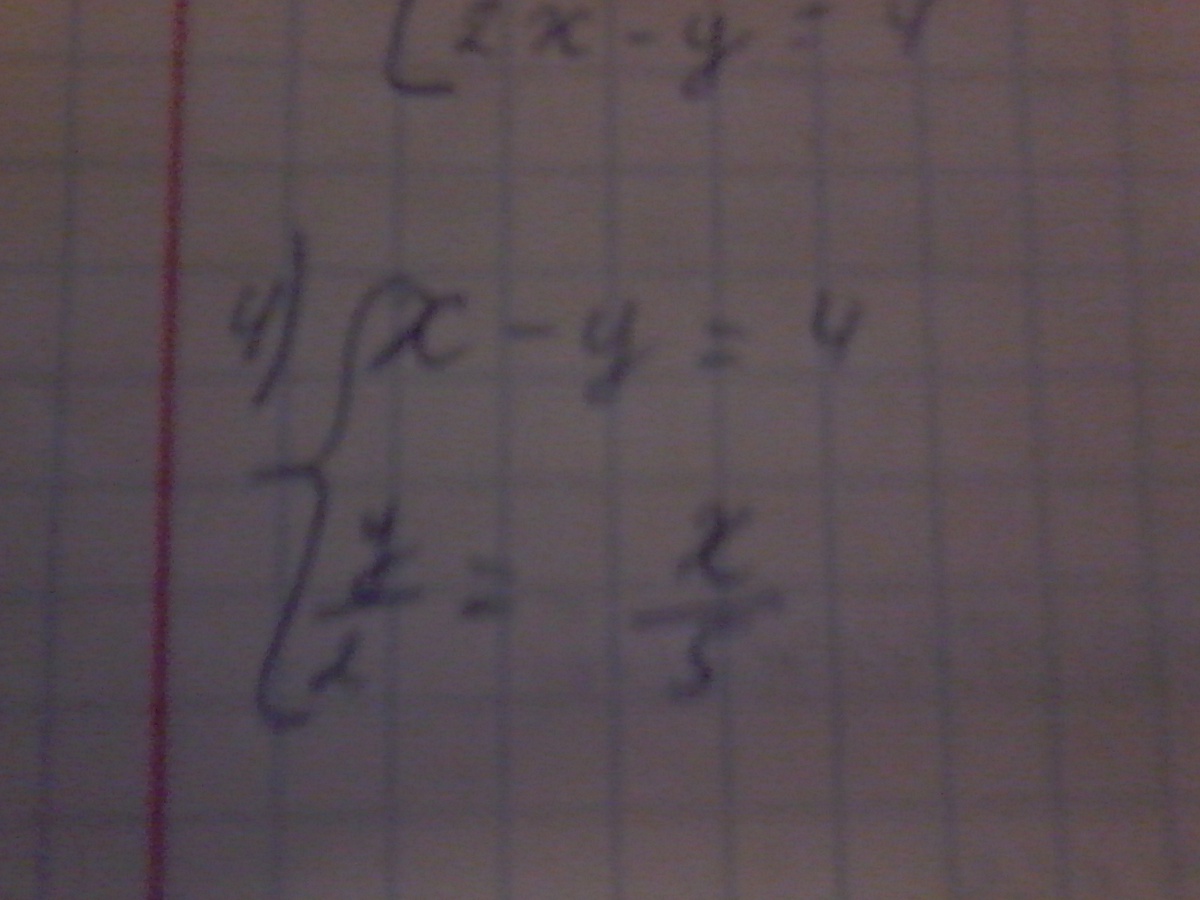 2x - y = 4
4) x - y = 4
y/2 = x/3